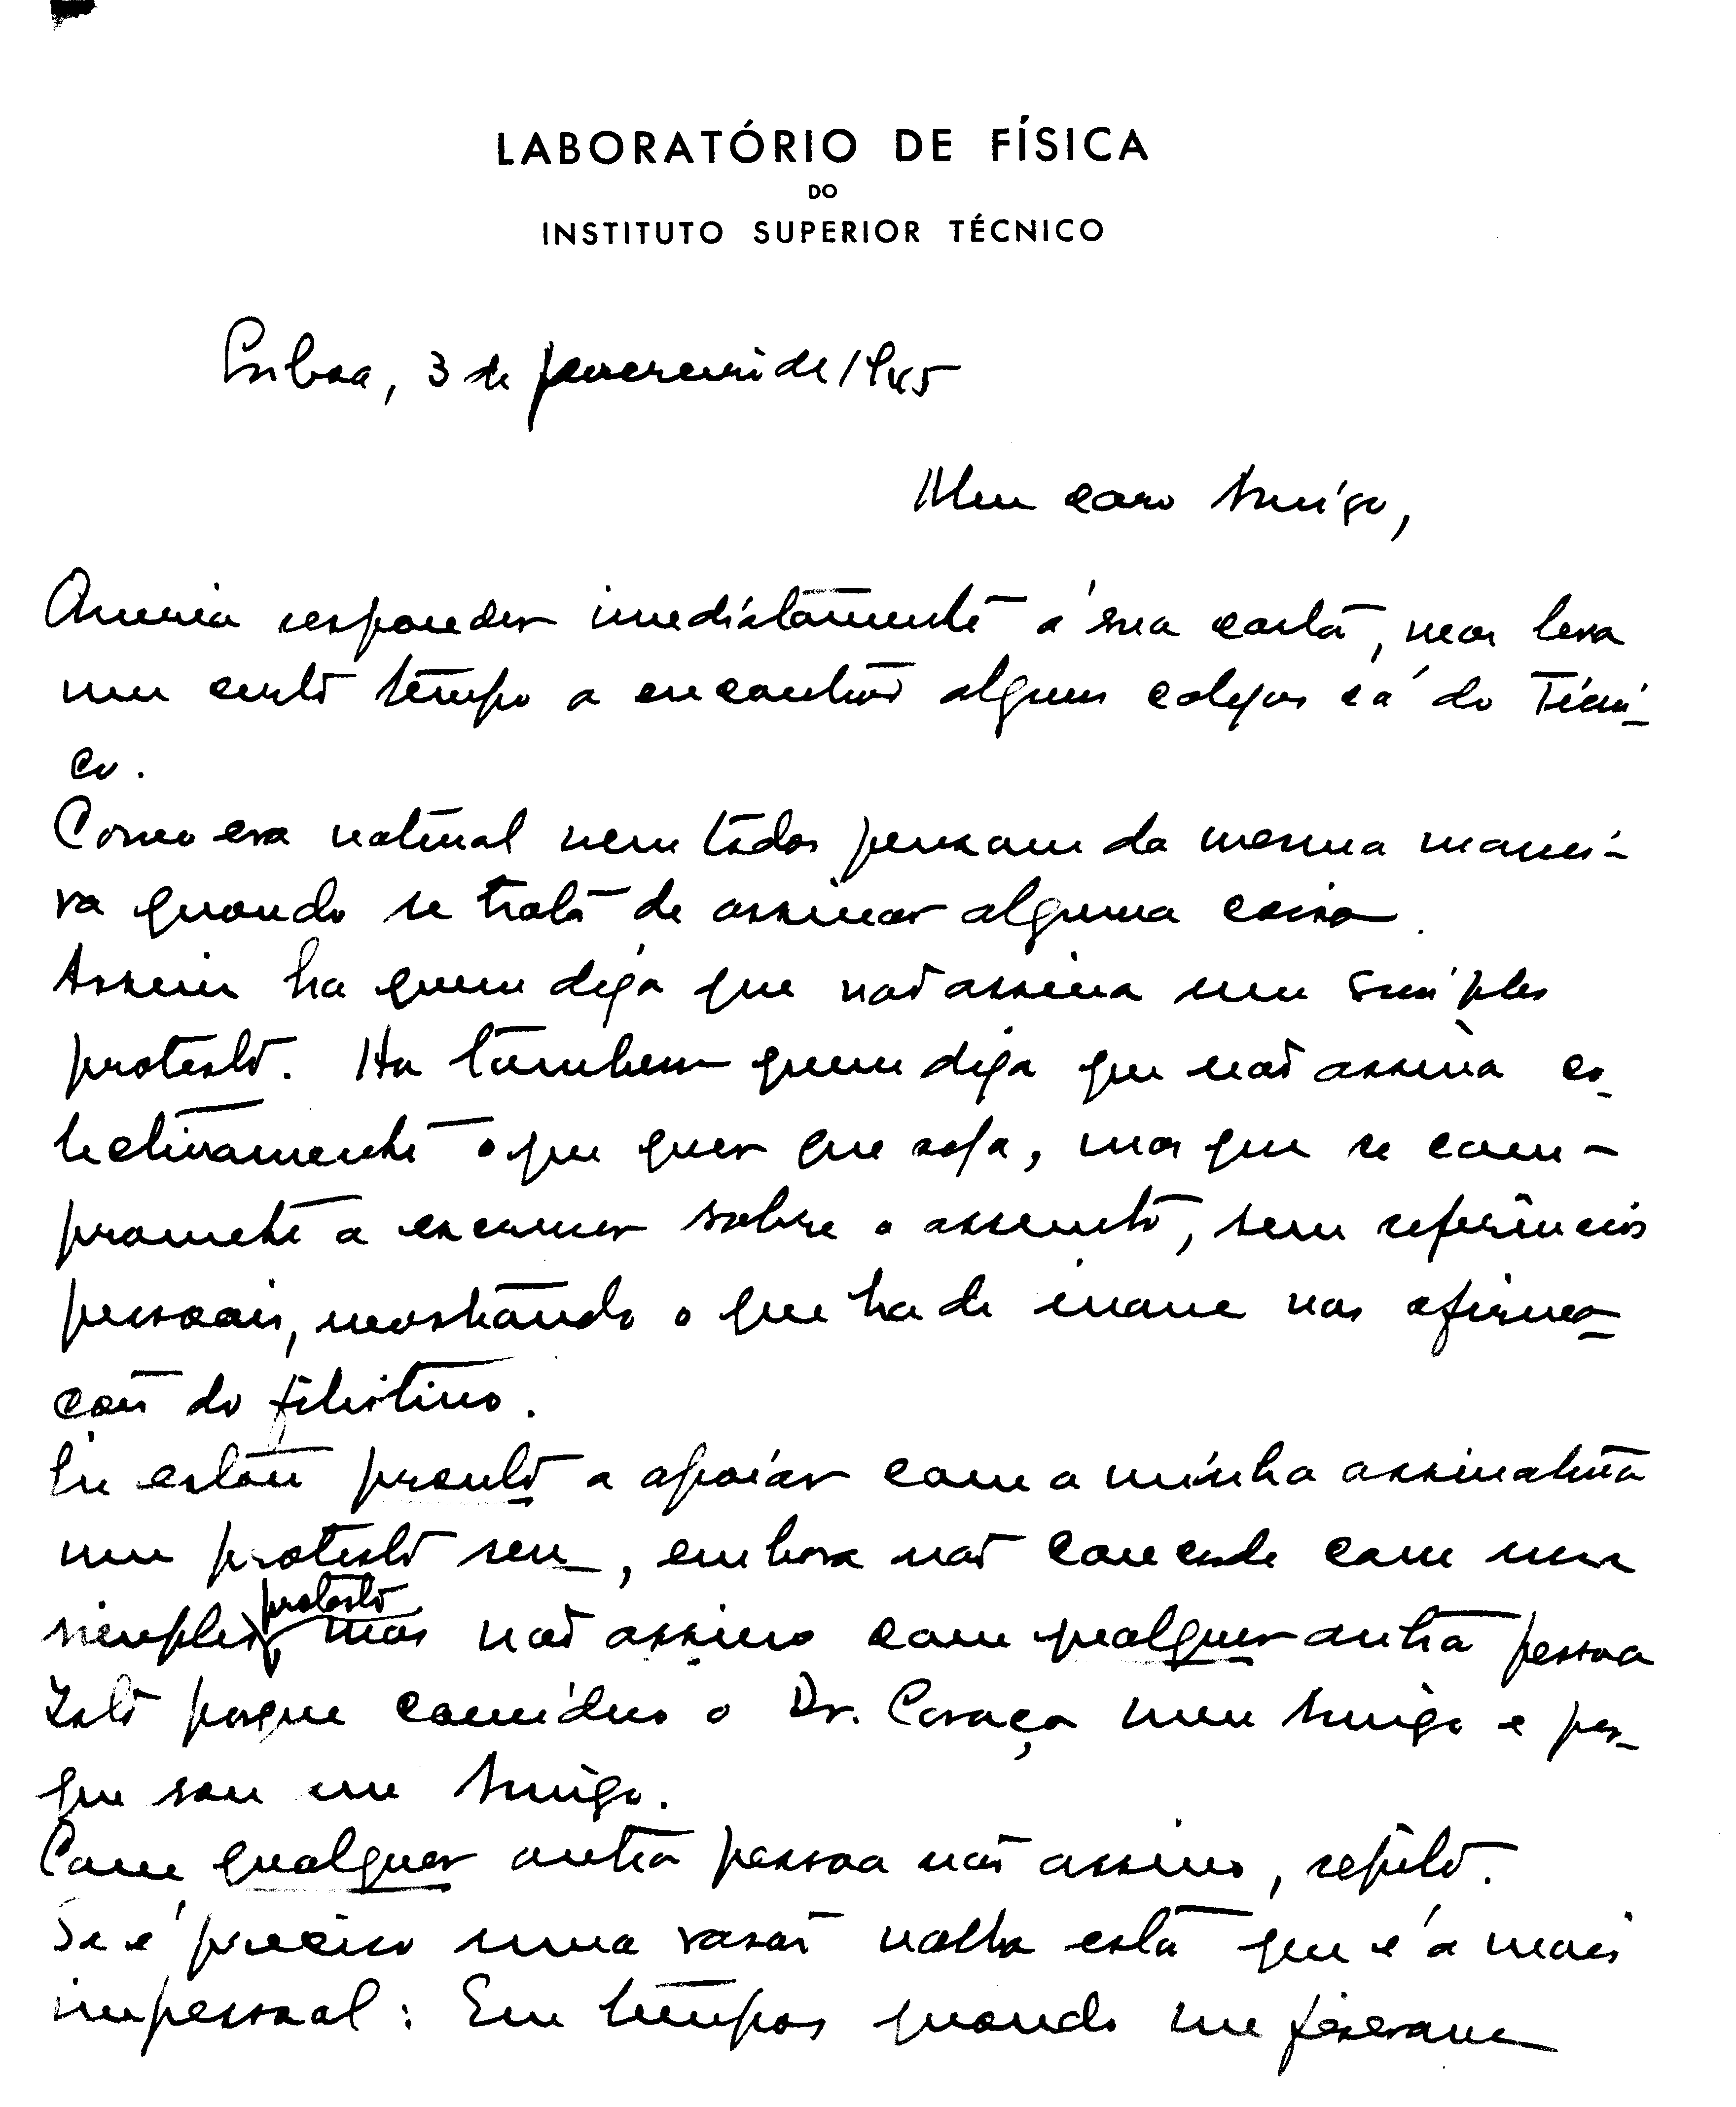 LABORATÓRIO DE FÍSICA
DO
INSTITUTO SUPERIOR TÉCNICO
Lisboa, 3 de fevereiro de 1945
Meu caro Amigo,
Queria responder imediatamente á sua carta, mas leva
um certo tempo a encontrar alguns colegas cá do Técni-
co.
Como era natural nem todos pensam da mesma manei-
ra quando se trata de assinar alguma coisa.
Assim ha quem diga que não assina um simples
protesto. Ha tambem quem diga que não assina co-
lectivamente o que quer que seja, mas que se com-
promete a escrever sobre o assunto, sem referências
pessoais, mostrando o que ha de inane nas afirma-
ções do filistino.
Eu estou pronto a apoiar com a minha assinatura
um protesto seu, embora não concorde com um
simples protesto, mas não assino com qualquer outra pessoa
Isto porque considero o Dr. Caraça meu Amigo e por-
que sou seu Amigo.
Com qualquer outra pessoa não assino, repito.
Se é preciso uma razão valha esta que é a mais
impessoal: Em tempos quando me fizeram